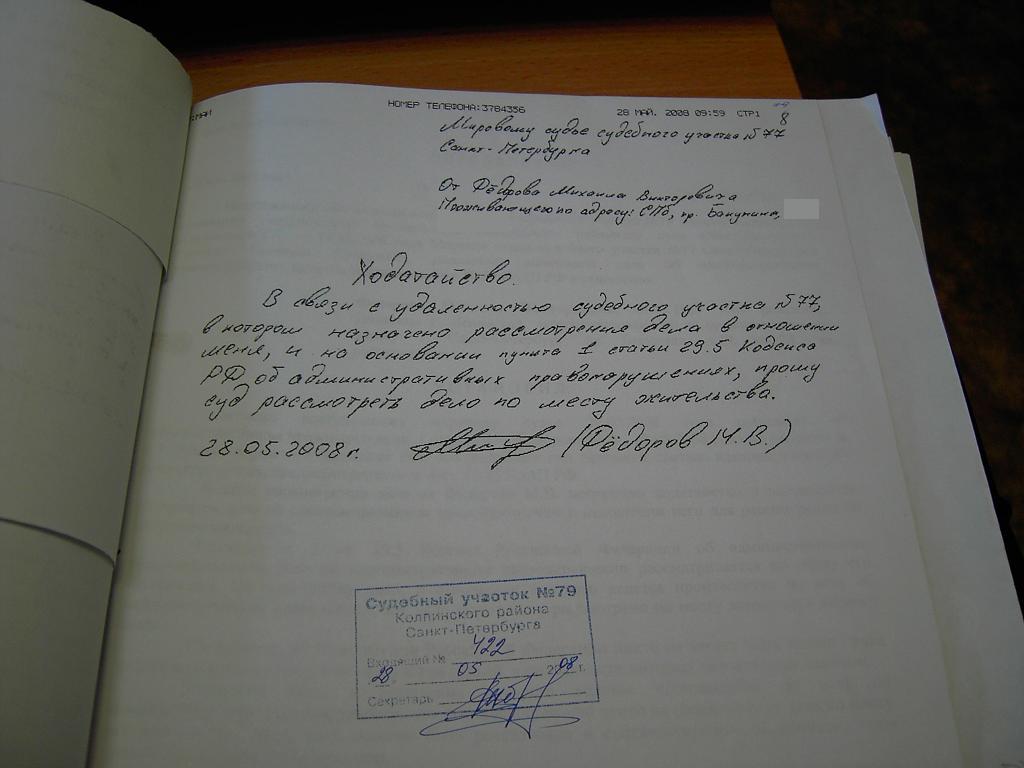 НОМЕР ТЕЛЕФОНА:3784356 28 МАЙ. 2008 09:59 СТР1
8
Мировому судье судебного участка №77
Санкт-Петербурга
От Фёдорова Михаила Викторовича
Проживающего по адресу: СПб, пр. Бакунина,
Ходатайство.
В связи с удаленностью судебного участка №77,
в котором назначено рассмотрение дела в отношении
меня, и на основании пункта 1 статьи 29.5 Кодекса
РФ об административных правонарушениях, прошу
суд рассмотреть дело по месту жительства.
28.05.2008г. (Фёдоров М.В.)
Судебный участок №79
Колпинского района
Санкт-Петербурга
Входящий № 422
28. 05 2008 г.
Секретарь